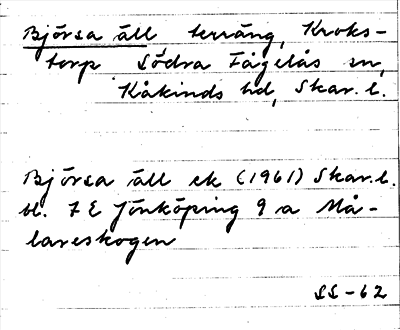 Björsa äll terräng, Kroks-
torp Södra Fågelås sn,
Kåkinds hd, Skar. l.
Björsa äll ek (1961) Skar. l.
bl. 7 E Jönköping 9 a Må-
lareskogen
SL-62